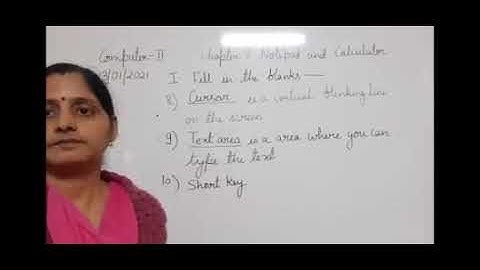 Computer-II Chapter Notepad and Calculator
13/01/2021 I Fill in the blanks—
8) Cursor is a vertical blinking line
on the screen
9) Text area is a area where you can
type the text
10) Short Key